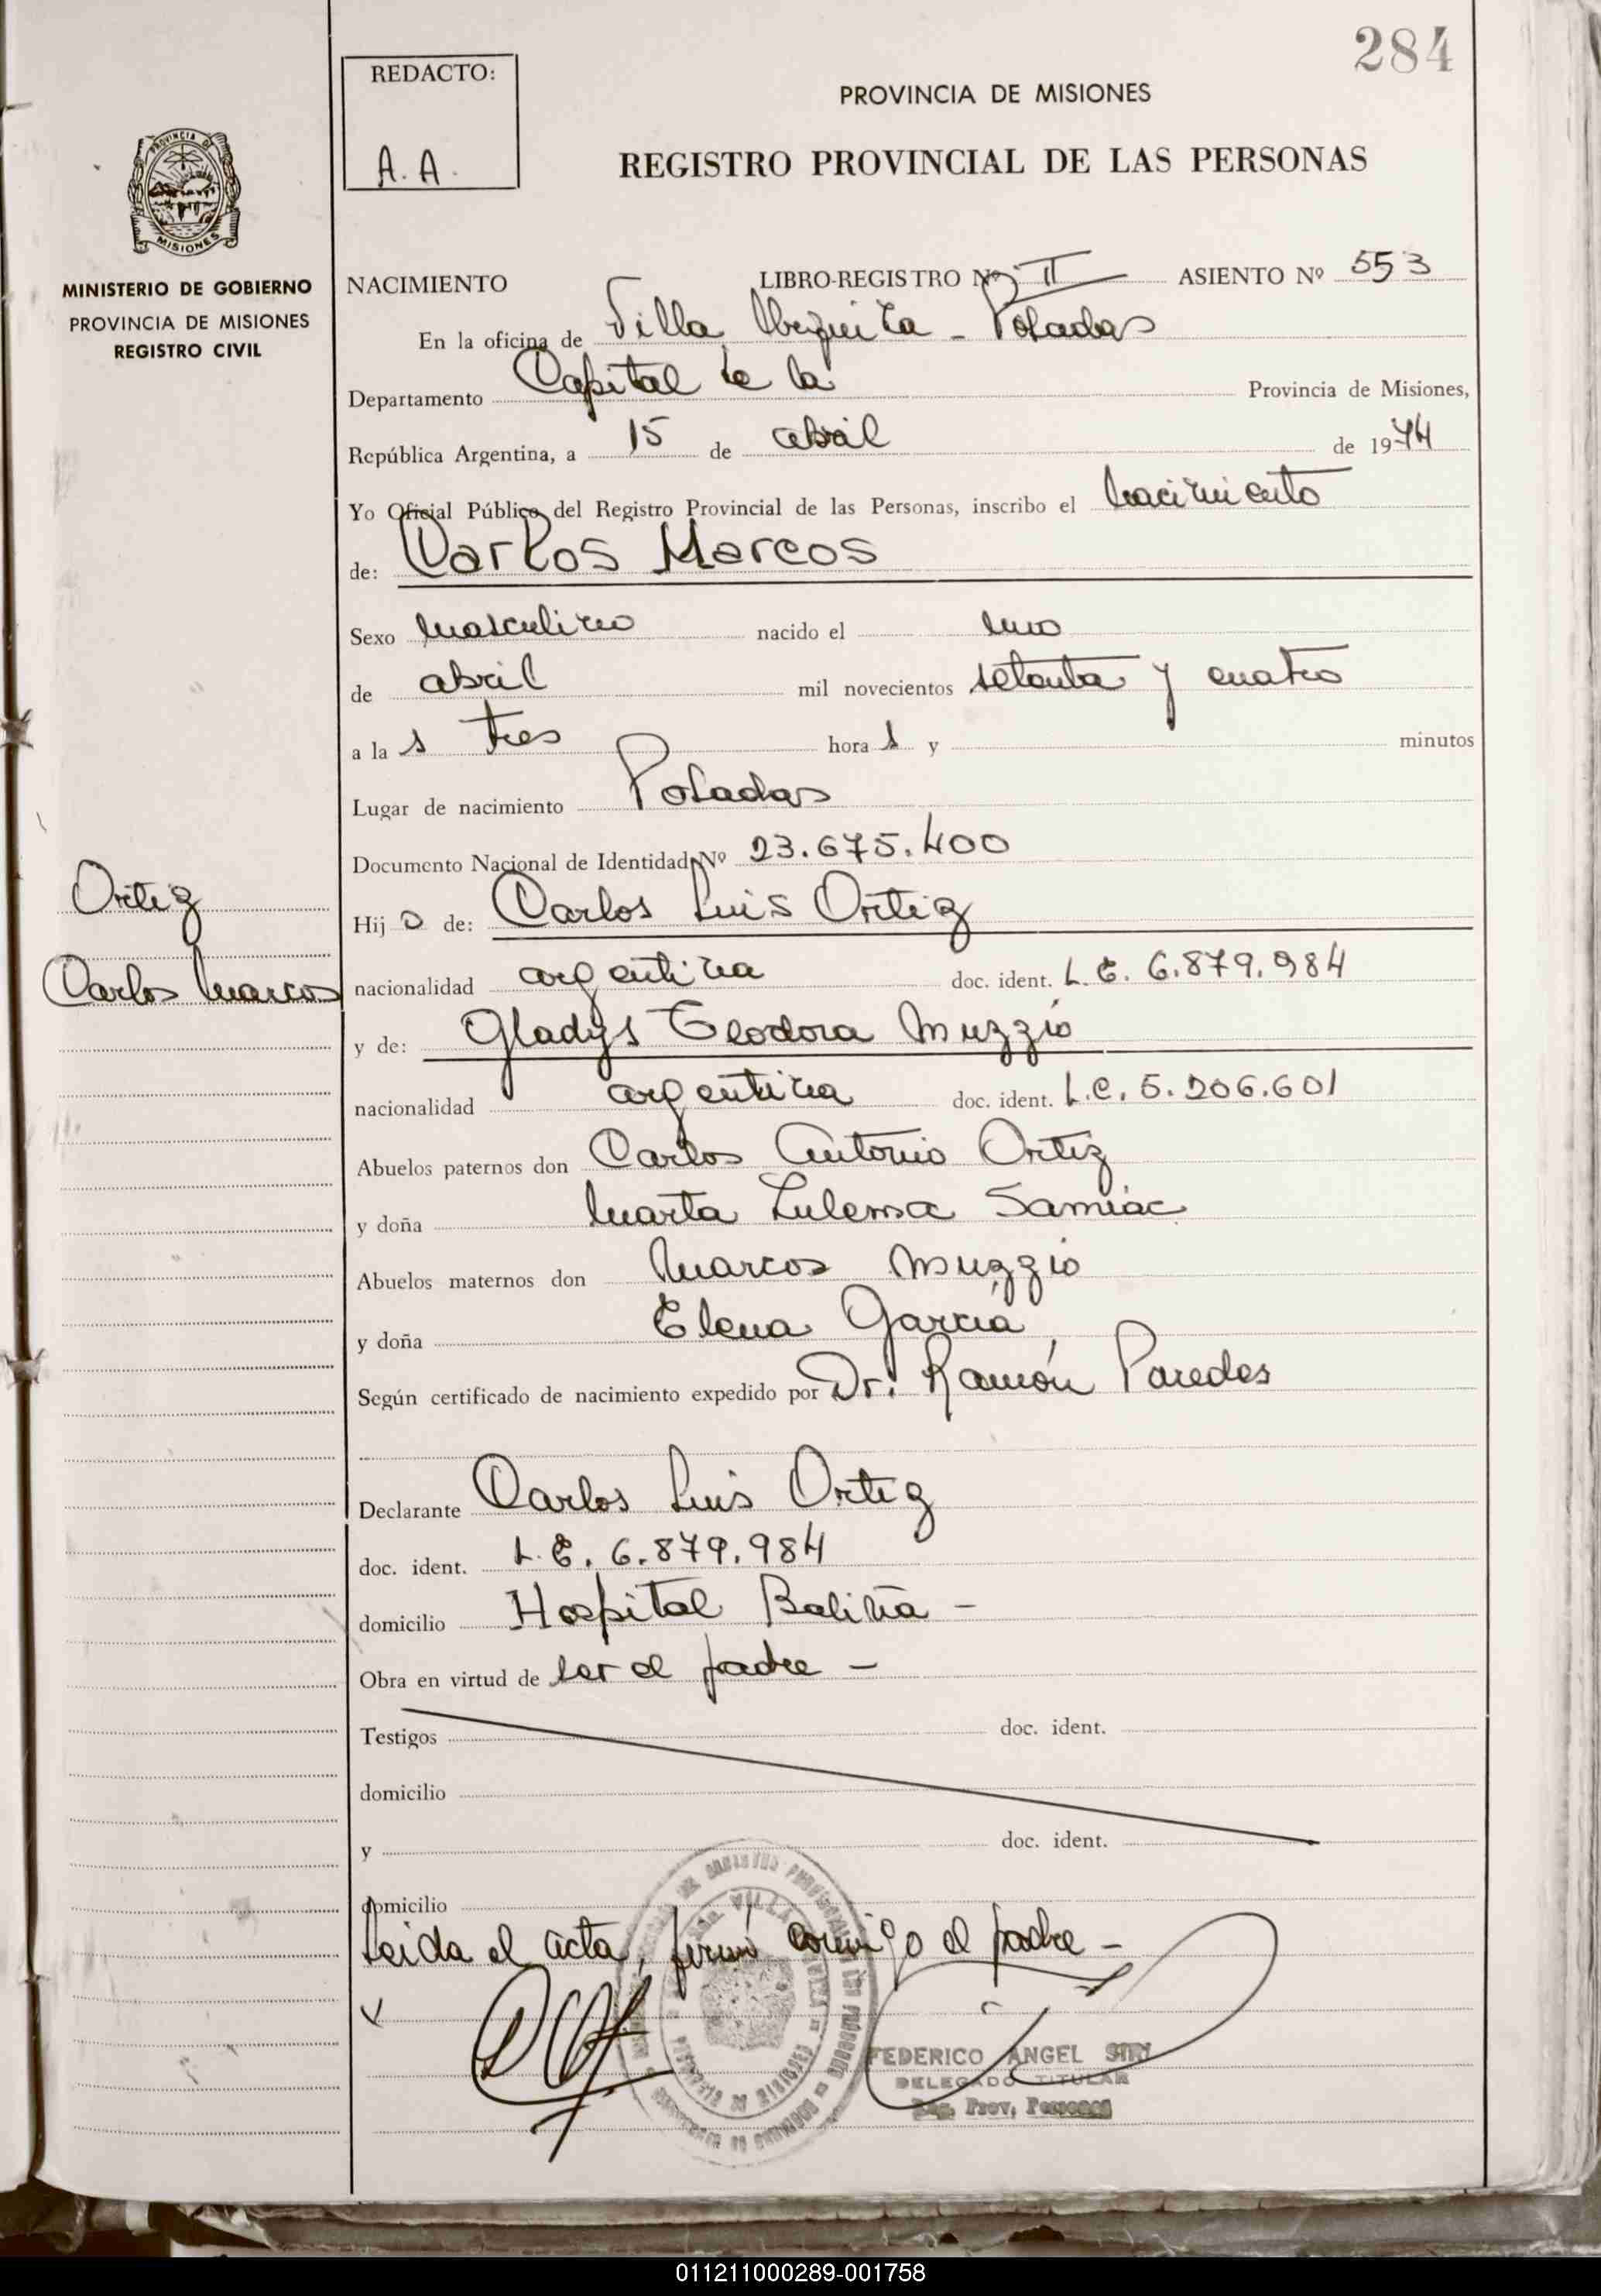 284
REDACTO:
A. A.
PROVINCIA DE MISIONES
REGISTRO PROVINCIAL DE LAS PERSONAS
PROVINCIA DE
MISIONES
MINISTERIO DE GOBIERNO
PROVINCIA DE MISIONES
REGISTRO CIVIL
NACIMIENTO LIBRO-REGISTRO Nº II ASIENTO Nº 553
En la oficina de Villa Urquiza - Posadas
Departamento Capital de la Provincia de Misiones,
República Argentina, a 15 de abril de 1974
Yo Oficial Público del Registro Provincial de las Personas, inscribo el nacimiento
de: Carlos Marcos
Sexo masculino nacido el uno
de abril mil novecientos setenta y cuatro
a la s tres hora s y minutos
Lugar de nacimiento Posadas
Documento Nacional de Identidad Nº 23.675.400
Ortiz
Hij o de: Carlos Luis Ortiz
Carlos Marcos
nacionalidad argentina doc. ident. L. E. 6.879.984
y de: Gladys Teodora Muzzio
nacionalidad argentina doc. ident. L.C. 5.206.601
Abuelos paternos don Carlos Antonio Ortiz
y doña Marta Zulema Samiac
Abuelos maternos don Marcos Muzzio
y doña Elena García
Según certificado de nacimiento expedido por Dr. Ramón Paredes
Declarante Carlos Luis Ortiz
doc. ident. L. E. 6.879.984
domicilio Hospital Baliña -
Obra en virtud de ser el padre -
Testigos doc. ident.
domicilio
y doc. ident.
domicilio
Leida el acta, firmó conmigo el padre -
FEDERICO ANGEL
DELEGADO TITULAR
Reg. Prov. Personas
011211000289-001758